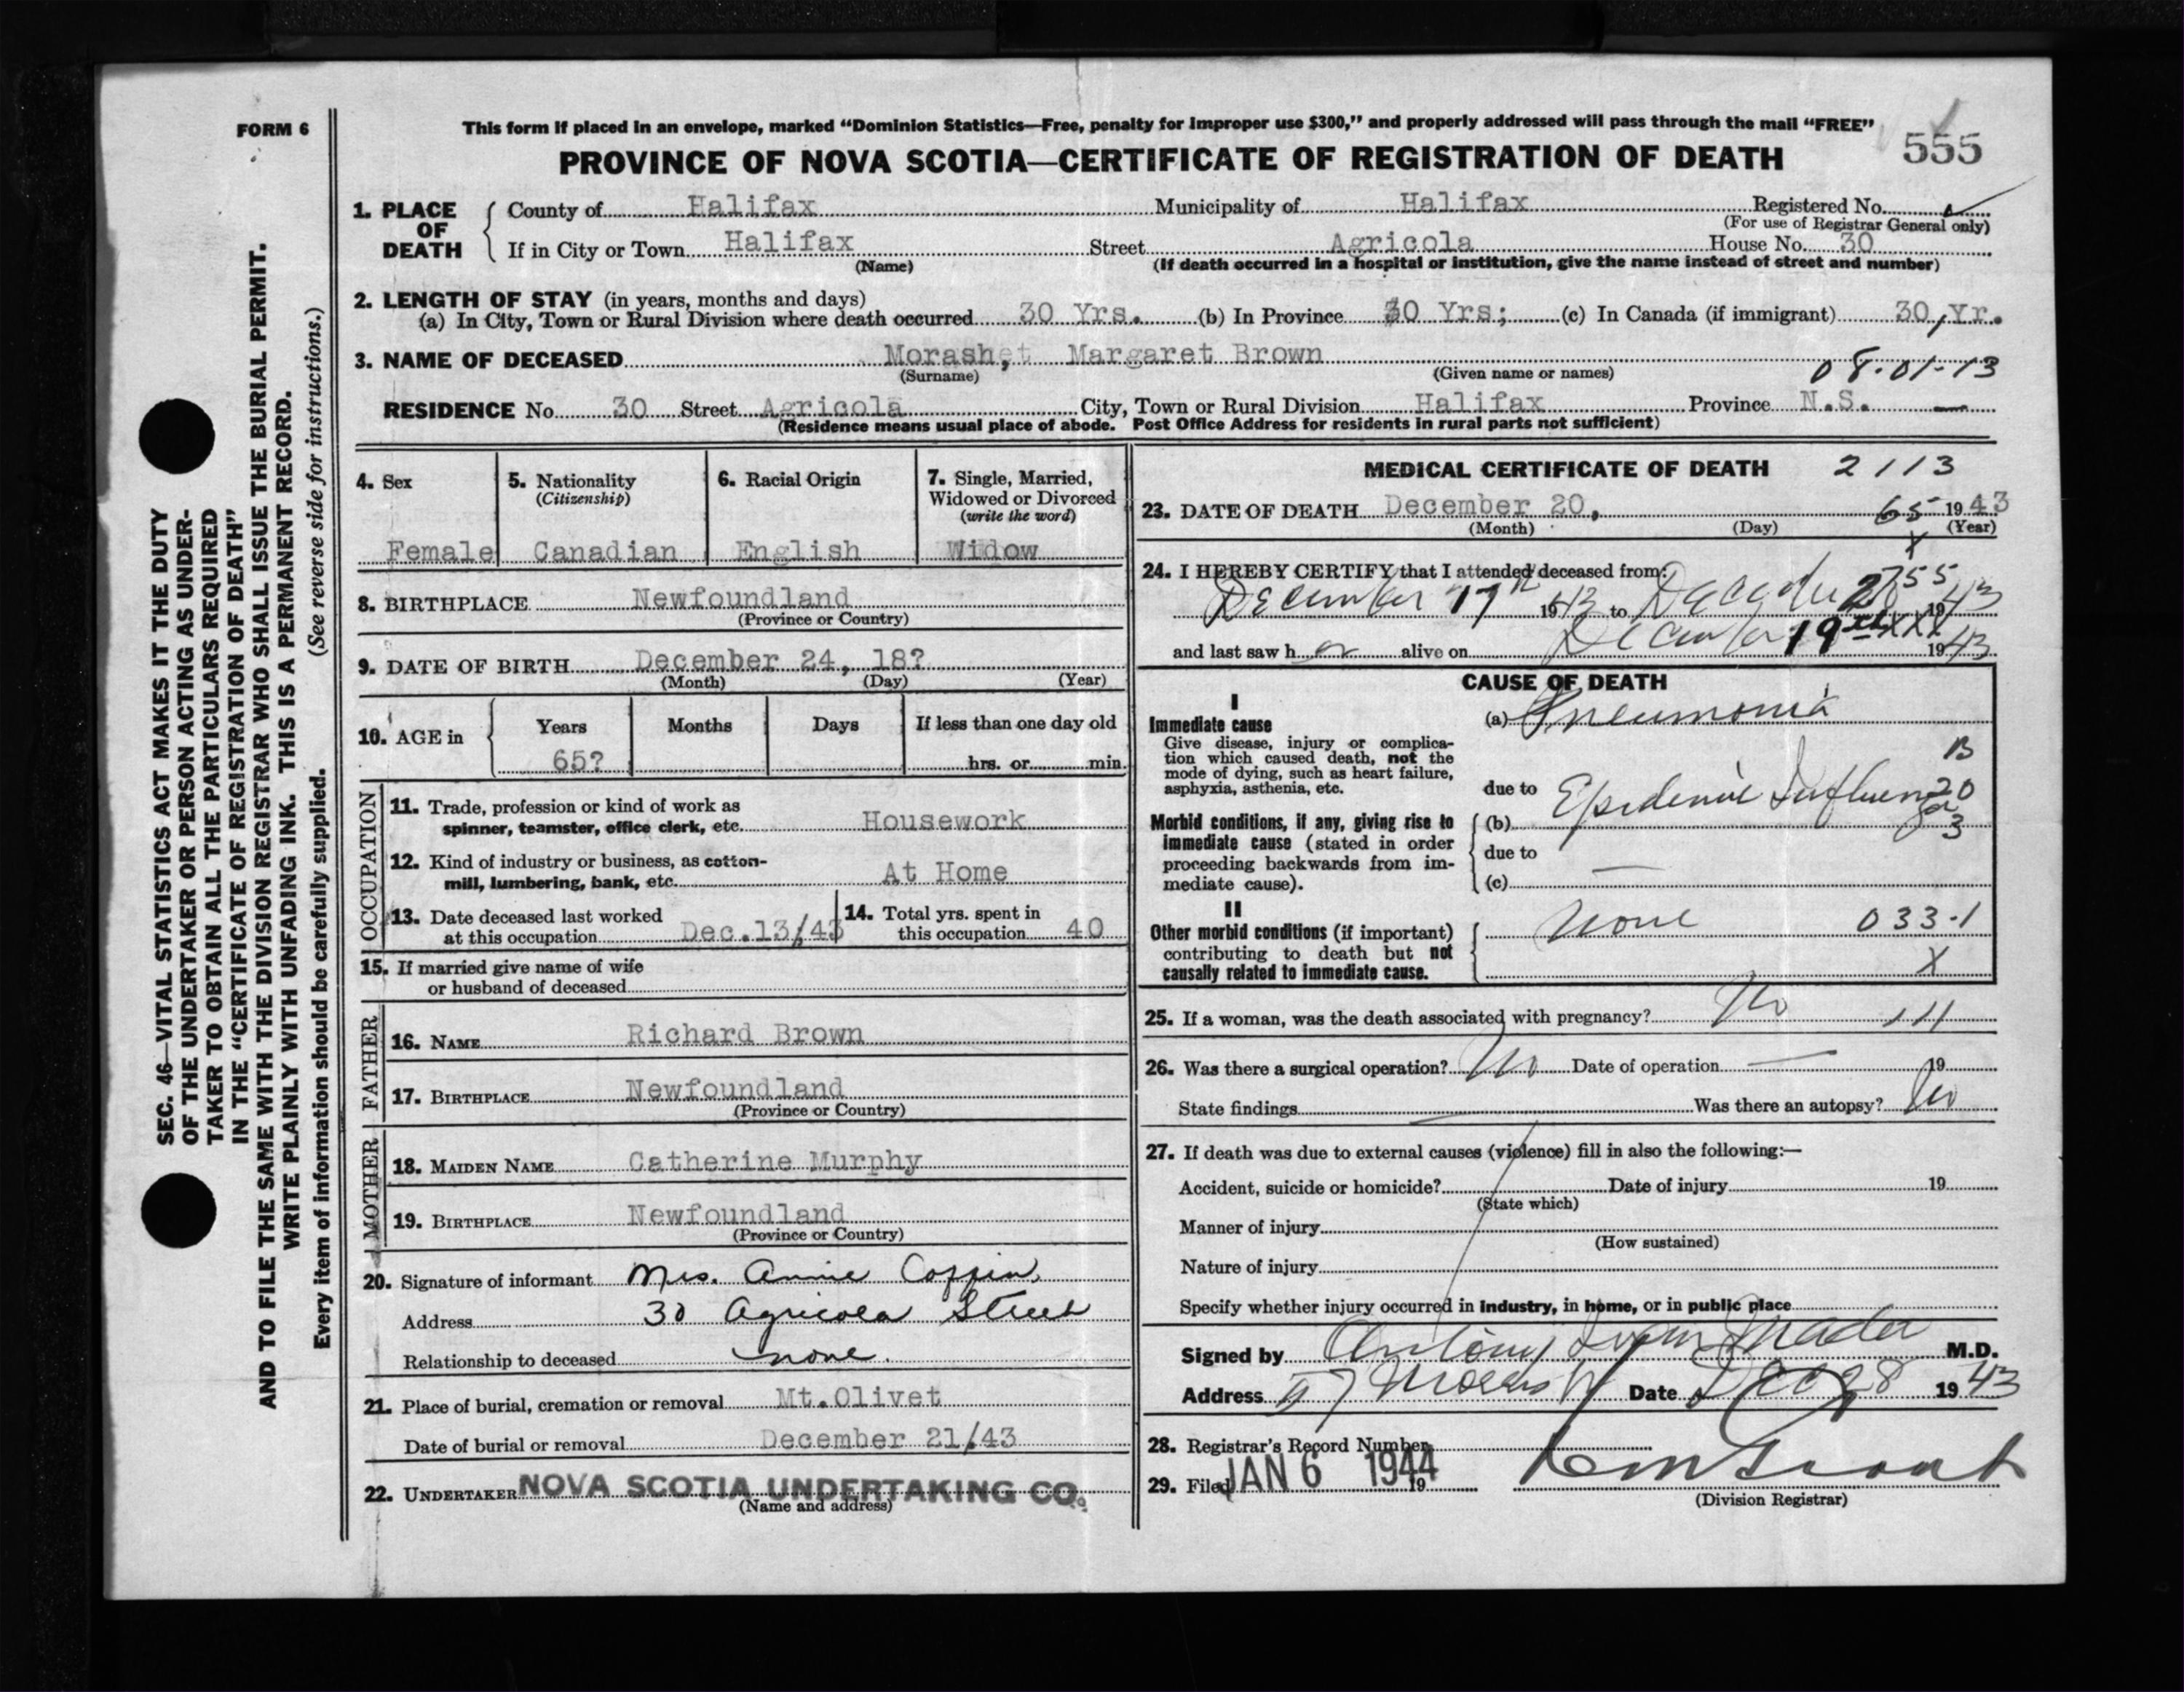 FORM 6
This form if placed in an envelope, marked “Dominion Statistics—Free, penalty for improper use $300,” and properly addressed will pass through the mail “FREE”
555
PROVINCE OF NOVA SCOTIA—CERTIFICATE OF REGISTRATION OF DEATH
SEC. 46—VITAL STATISTICS ACT MAKES IT THE DUTY
OF THE UNDERTAKER OR PERSON ACTING AS UNDER-
TAKER TO OBTAIN ALL THE PARTICULARS REQUIRED
IN THE “CERTIFICATE OF REGISTRATION OF DEATH”
AND TO FILE THE SAME WITH THE DIVISION REGISTRAR WHO SHALL ISSUE THE BURIAL PERMIT.
WRITE PLAINLY WITH UNFADING INK. THIS IS A PERMANENT RECORD.
Every item of information should be carefully supplied. (See reverse side for instructions.)
1. PLACE OF DEATH County of Halifax Municipality of Halifax Registered No.
(For use of Registrar General only)
If in City or Town Halifax Street Agricola House No. 30
(Name) (If death occurred in a hospital or institution, give the name instead of street and number)
2. LENGTH OF STAY (in years, months and days)
(a) In City, Town or Rural Division where death occurred 30 Yrs. (b) In Province 30 Yrs; (c) In Canada (if immigrant) 30, Yr.
3. NAME OF DECEASED Morash, Margaret Brown
(Surname) (Given name or names) 08-01-13
RESIDENCE No. 30 Street Agricola City, Town or Rural Division Halifax Province N.S.
(Residence means usual place of abode. Post Office Address for residents in rural parts not sufficient)
4. Sex
Female
5. Nationality
(Citizenship)
Canadian
6. Racial Origin
English
7. Single, Married,
Widowed or Divorced
(write the word)
Widow
8. BIRTHPLACE Newfoundland
(Province or Country)
9. DATE OF BIRTH December 24, 18?
(Month) (Day) (Year)
10. AGE in Years Months Days If less than one day old
65? hrs. or min.
OCCUPATION
11. Trade, profession or kind of work as
spinner, teamster, office clerk, etc. Housework
12. Kind of industry or business, as cotton-
mill, lumbering, bank, etc. At Home
13. Date deceased last worked
at this occupation Dec.13/43
14. Total yrs. spent in
this occupation 40
15. If married give name of wife
or husband of deceased
FATHER
16. NAME Richard Brown
17. BIRTHPLACE Newfoundland
(Province or Country)
MOTHER
18. MAIDEN NAME Catherine Murphy
19. BIRTHPLACE Newfoundland
(Province or Country)
20. Signature of informant Mrs. Annie Coffin
Address 30 Agricola Street
Relationship to deceased none.
21. Place of burial, cremation or removal Mt.Olivet
Date of burial or removal December 21/43
22. UNDERTAKER NOVA SCOTIA UNDERTAKING CO.
(Name and address)
MEDICAL CERTIFICATE OF DEATH 2113
23. DATE OF DEATH December 20, 65 1943
(Month) (Day) (Year)
X
24. I HEREBY CERTIFY that I attended deceased from:
December 17th 1943 to 1943
and last saw her alive on December 19th 1943
CAUSE OF DEATH
I
Immediate cause (a) Pneumonia
Give disease, injury or complica-
tion which caused death, not the
mode of dying, such as heart failure,
asphyxia, asthenia, etc.
due to Epidemic Influenza
Morbid conditions, if any, giving rise to
immediate cause (stated in order
proceeding backwards from im-
mediate cause).
(b)
due to
(c)
B
20
3
II
Other morbid conditions (if important)
contributing to death but not
causally related to immediate cause.
None 033-1
X
25. If a woman, was the death associated with pregnancy? No 111
26. Was there a surgical operation? No Date of operation — 19
State findings Was there an autopsy? No
27. If death was due to external causes (violence) fill in also the following:—
Accident, suicide or homicide? Date of injury 19
(State which)
Manner of injury
(How sustained)
Nature of injury
Specify whether injury occurred in industry, in home, or in public place
Signed by M.D.
Address 57 Morris Date Dec 28 1943
28. Registrar's Record Number
29. Filed JAN 6 1944 19
(Division Registrar)